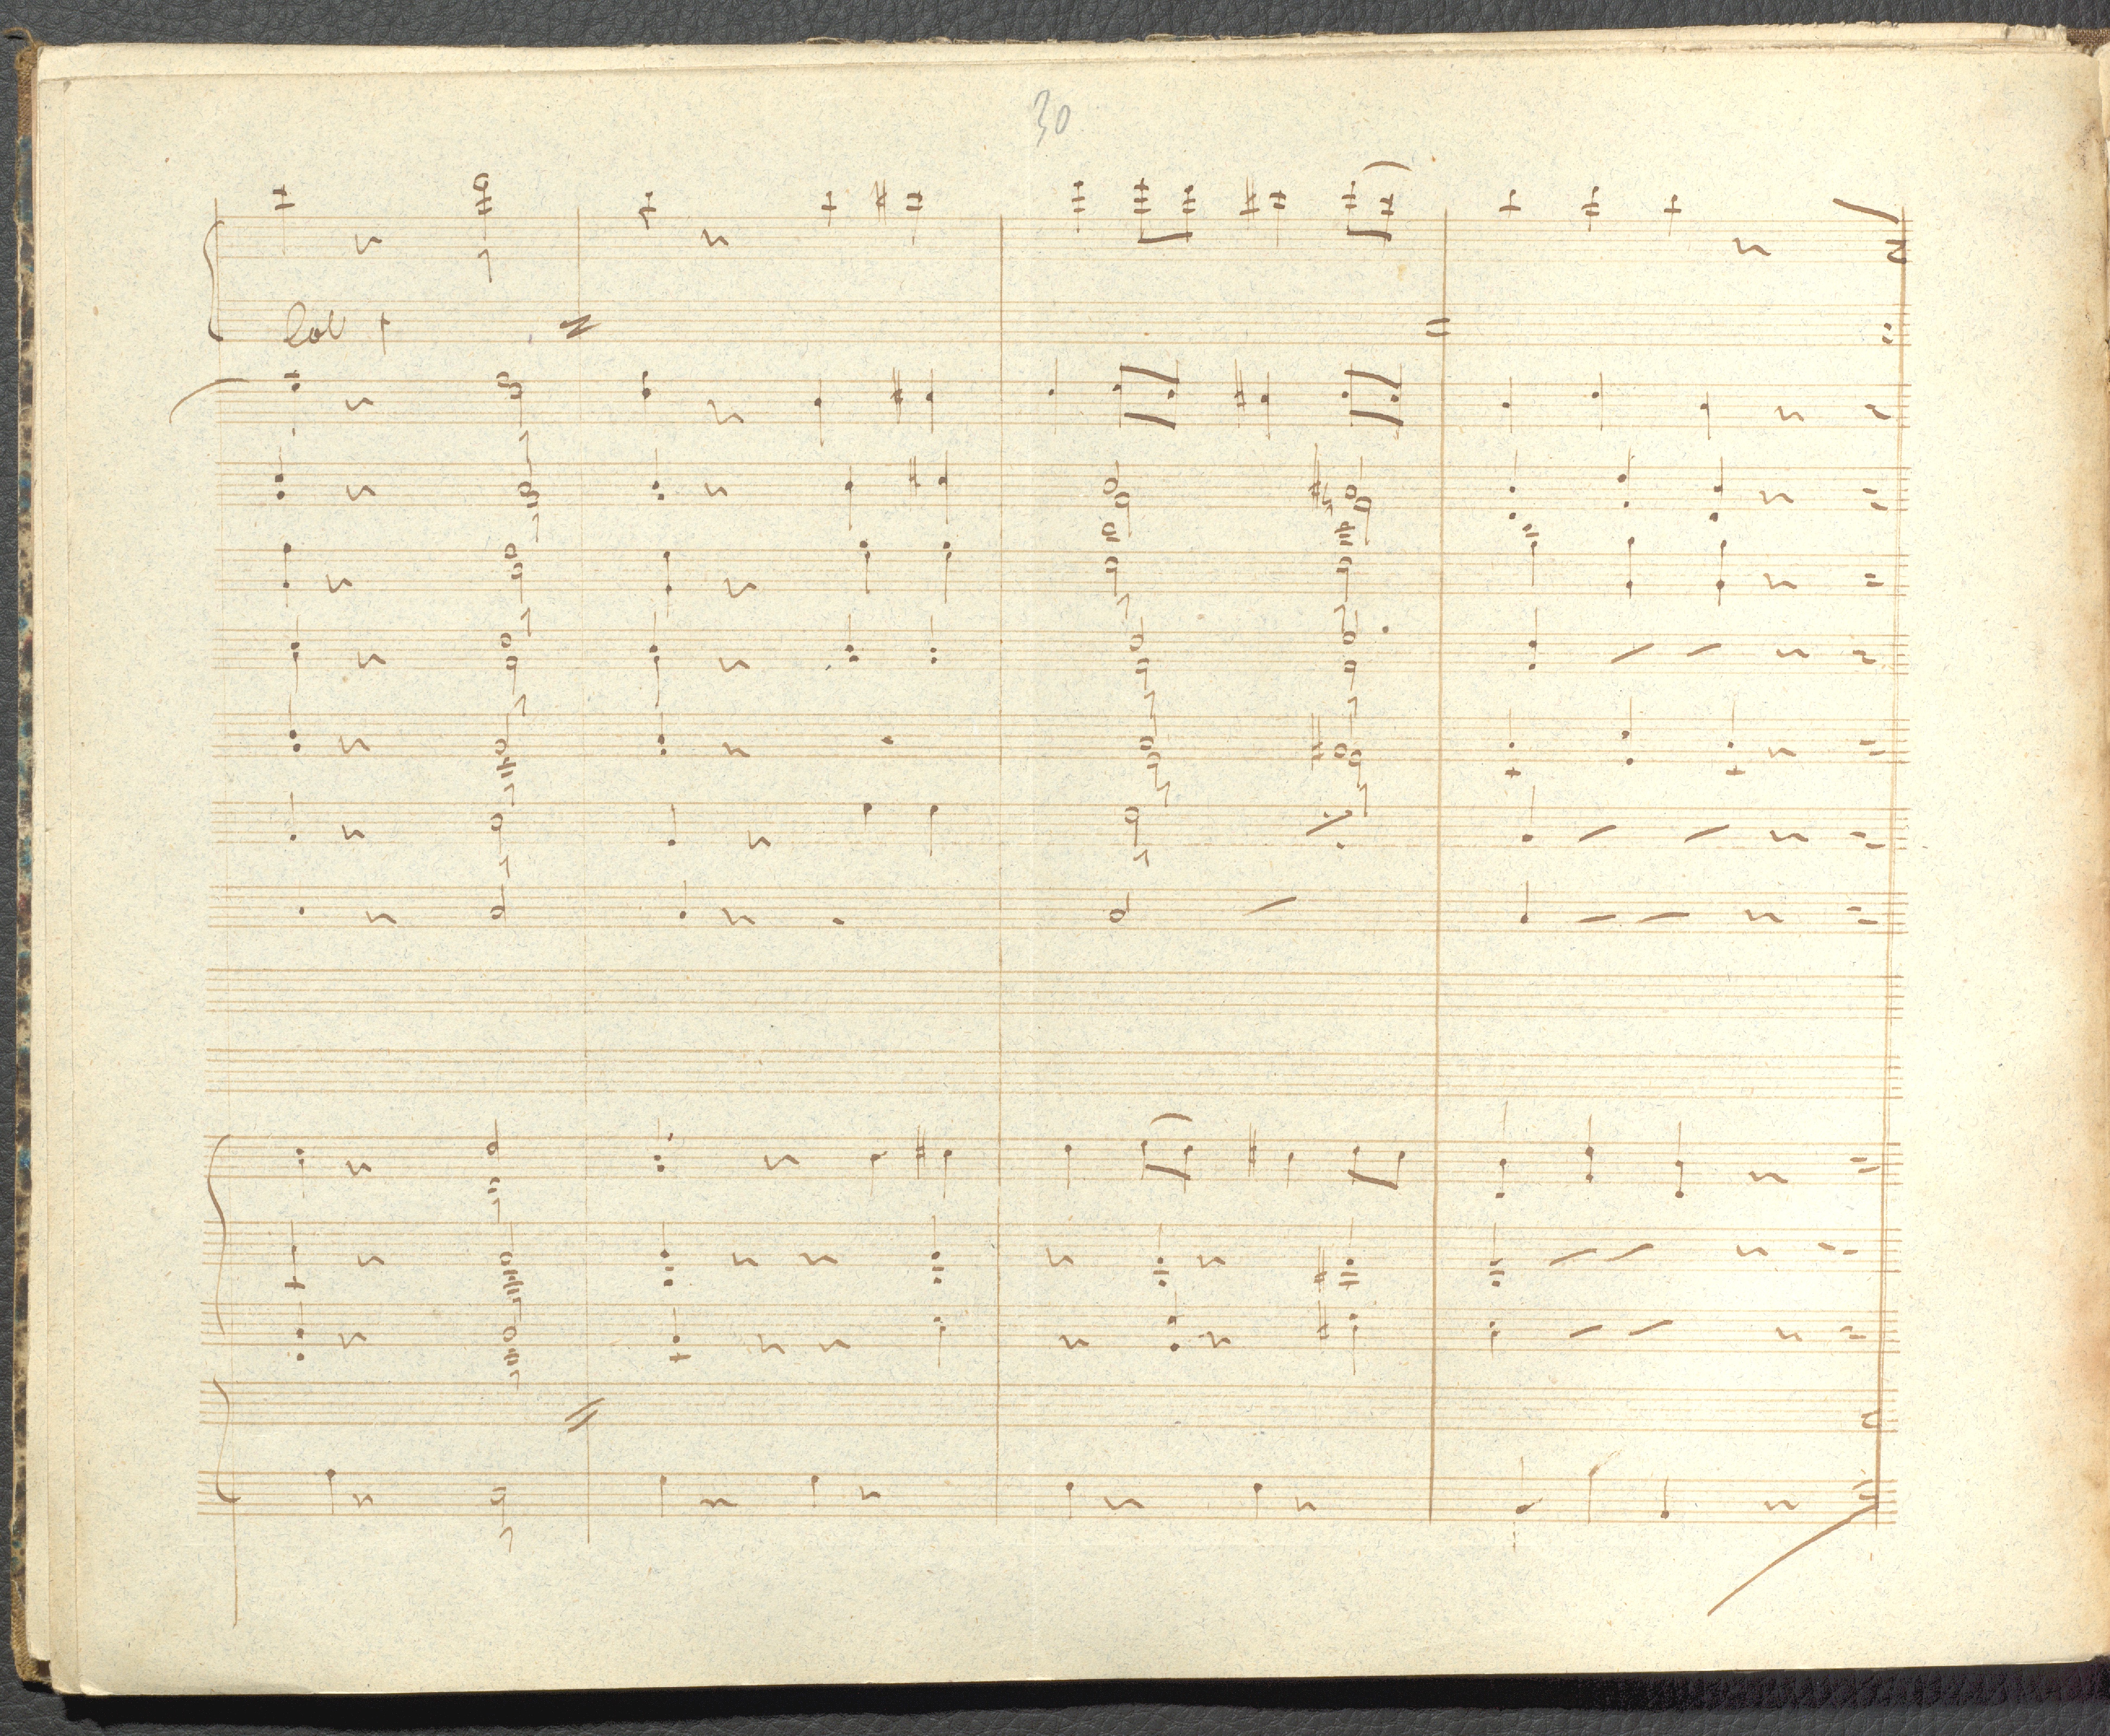 30
Col